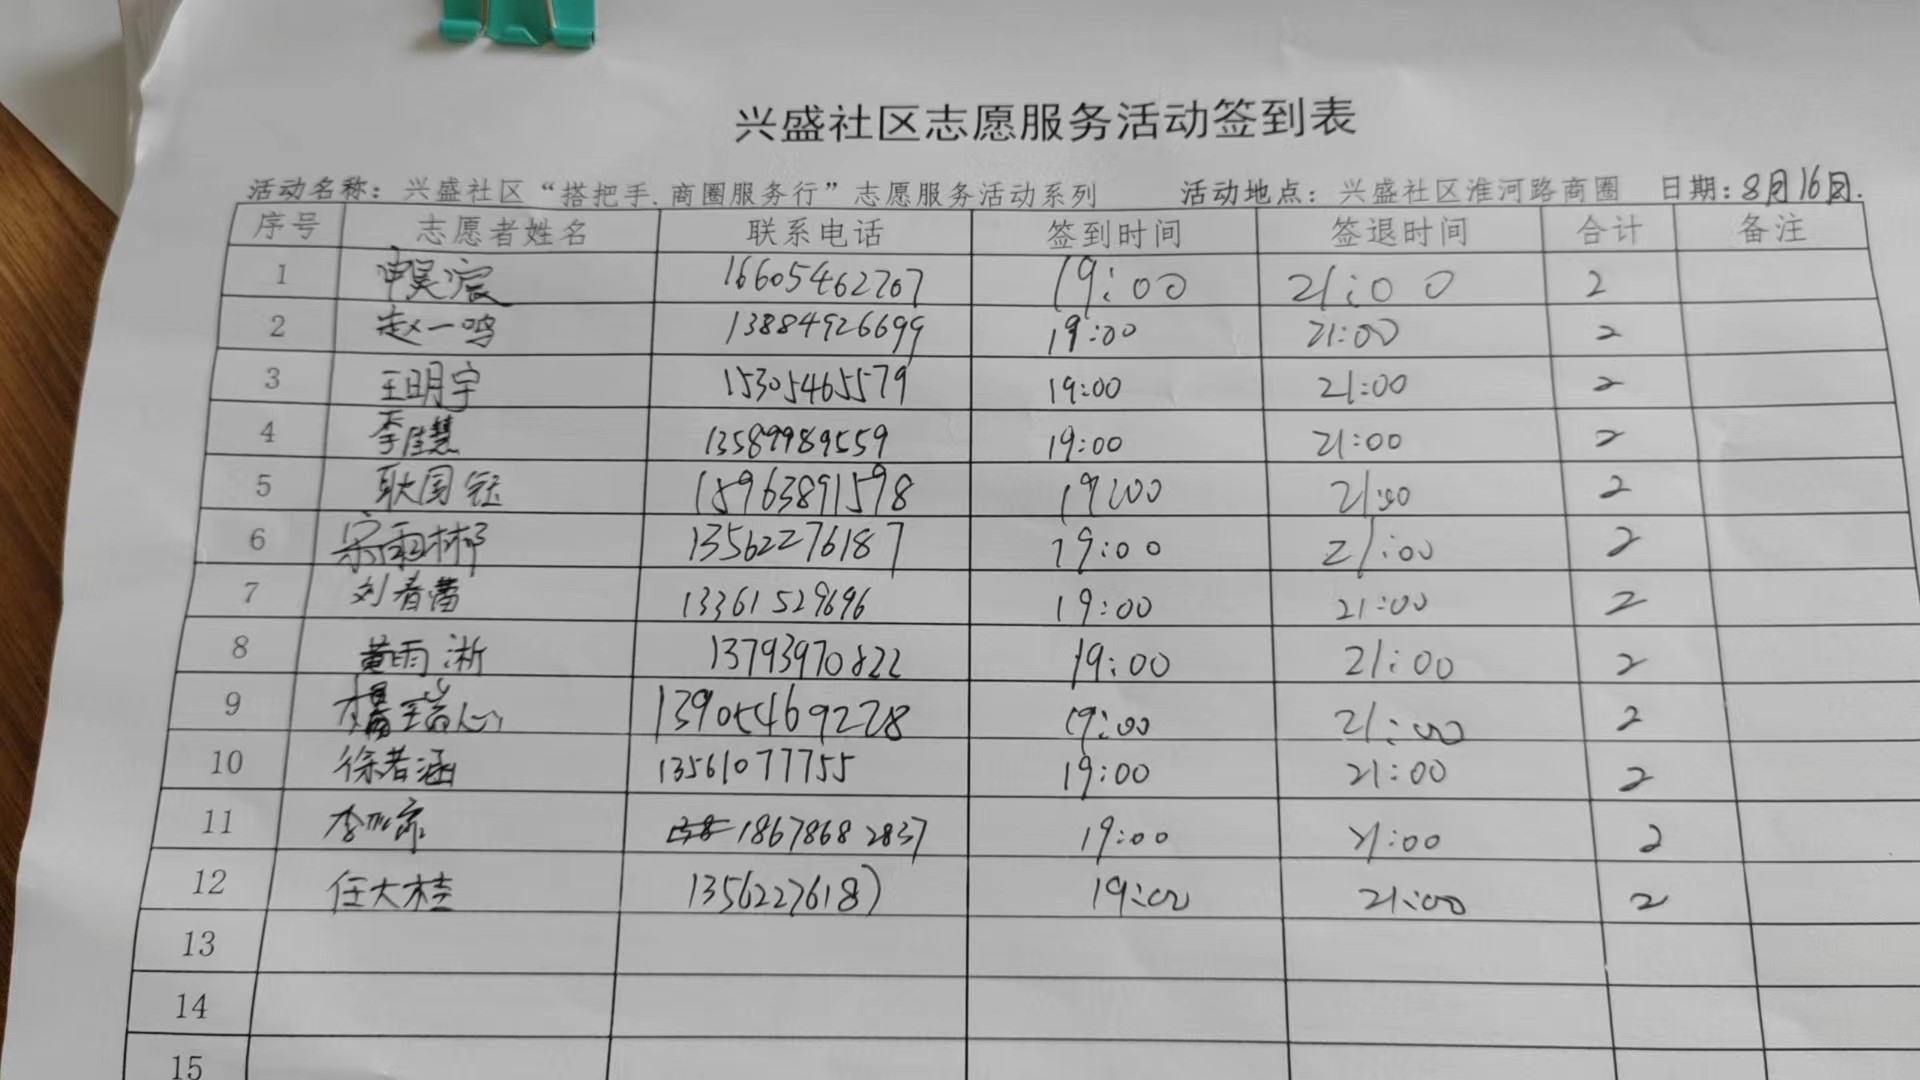 兴盛社区志愿服务活动签到表
活动名称：兴盛社区“搭把手、商圈服务行”志愿服务活动系列 活动地点：兴盛社区淮河路商圈 日期：8月16日.
序号 志愿者姓名 联系电话 签到时间 签退时间 合计 备注
1 申昊宸 16605462707 19:00 21:00 2
2 赵一鸣 13884926699 19:00 21:00 2
3 王明宇 15305465579 19:00 21:00 2
4 李佳慧 13589989559 19:00 21:00 2
5 耿国钰 15963891598 19:00 21:00 2
6 13562276187 19:00 21:00 2
7 13361529696 19:00 21:00 2
8 黄雨淅 13793970822 19:00 21:00 2
9 13905469228 19:00 21:00 2
10 徐若涵 13561077755 19:00 21:00 2
11 18678682837 19:00 21:00 2
12 任大桂 13562276187 19:00 21:00 2
13
14
15